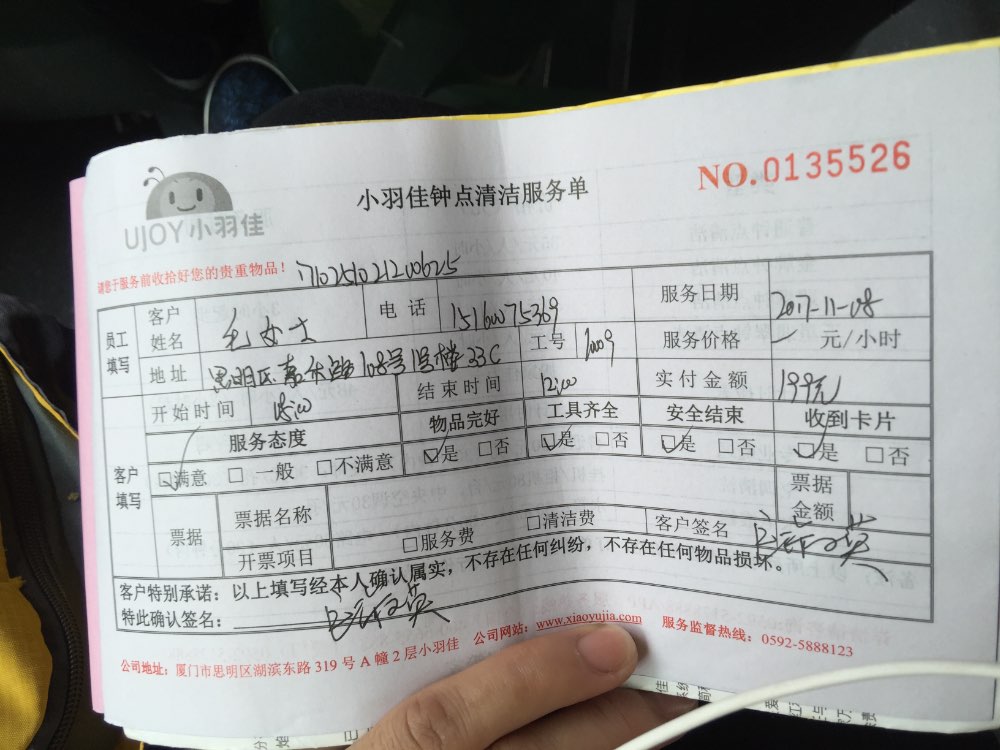 UJOY小羽佳
小羽佳钟点清洁服务单
NO.0135526
请您于服务前收拾好您的贵重物品!
员工填写
客户姓名 毛女士 电话 15160075369 服务日期 2017-11-08
地址 思明区嘉禾路108号 33C 工号 2009 服务价格 元/小时
开始时间 结束时间 12:00 实付金额 199元
客户填写
服务态度 物品完好 工具齐全 安全结束 收到卡片
☑满意 □一般 □不满意 ☑是 □否 ☑是 □否 ☑是 □否 ☑是 □否
票据 票据名称 票据金额
开票项目 □服务费 □清洁费 客户签名
客户特别承诺：以上填写经本人确认属实，不存在任何纠纷，不存在任何物品损坏。
特此确认签名：
公司地址：厦门市思明区湖滨东路319号A幢2层小羽佳 公司网站：www.xiaoyujia.com 服务监督热线：0592-5888123